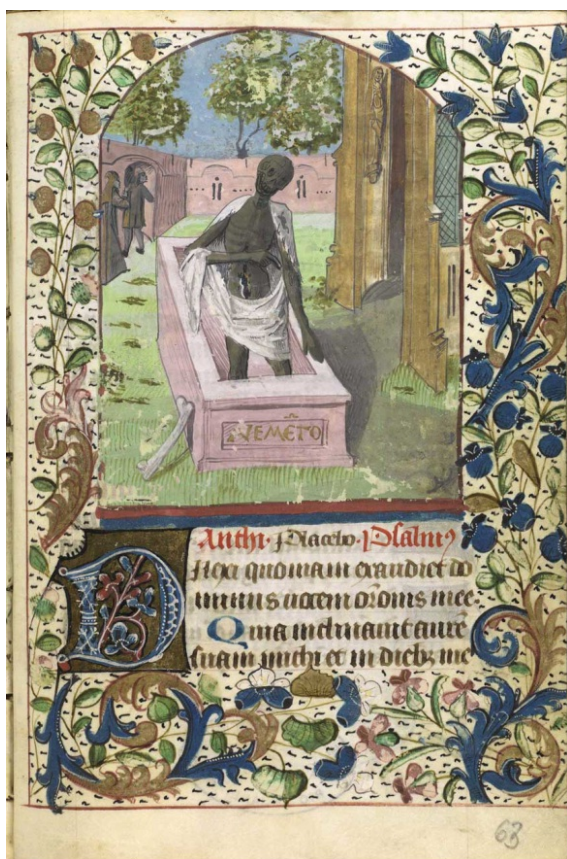 MEMẼTO
Anthi. Placebo. Psalmꝰ
Dilexi quoniam exaudiet do
minus uocem orõnis mee
Quia inclinauit aurẽ
suam michi et in diebꝫ me
63